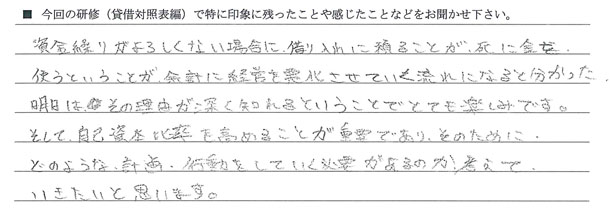 ■ 今回の研修（貸借対照表編）で特に印象に残ったことや感じたことなどをお聞かせ下さい。
資金繰りがよろしくない場合に、借り入れに頼ることが、死に金を
使うということが、余計に経営を悪化させていく流れになると分かった。
明日は、その理由が深く知れるということでとても楽しみです。
そして、自己資本比率を高めることが重要であり、そのために
どのような、計画・行動をしていく必要があるのか、考えて
いきたいと思います。